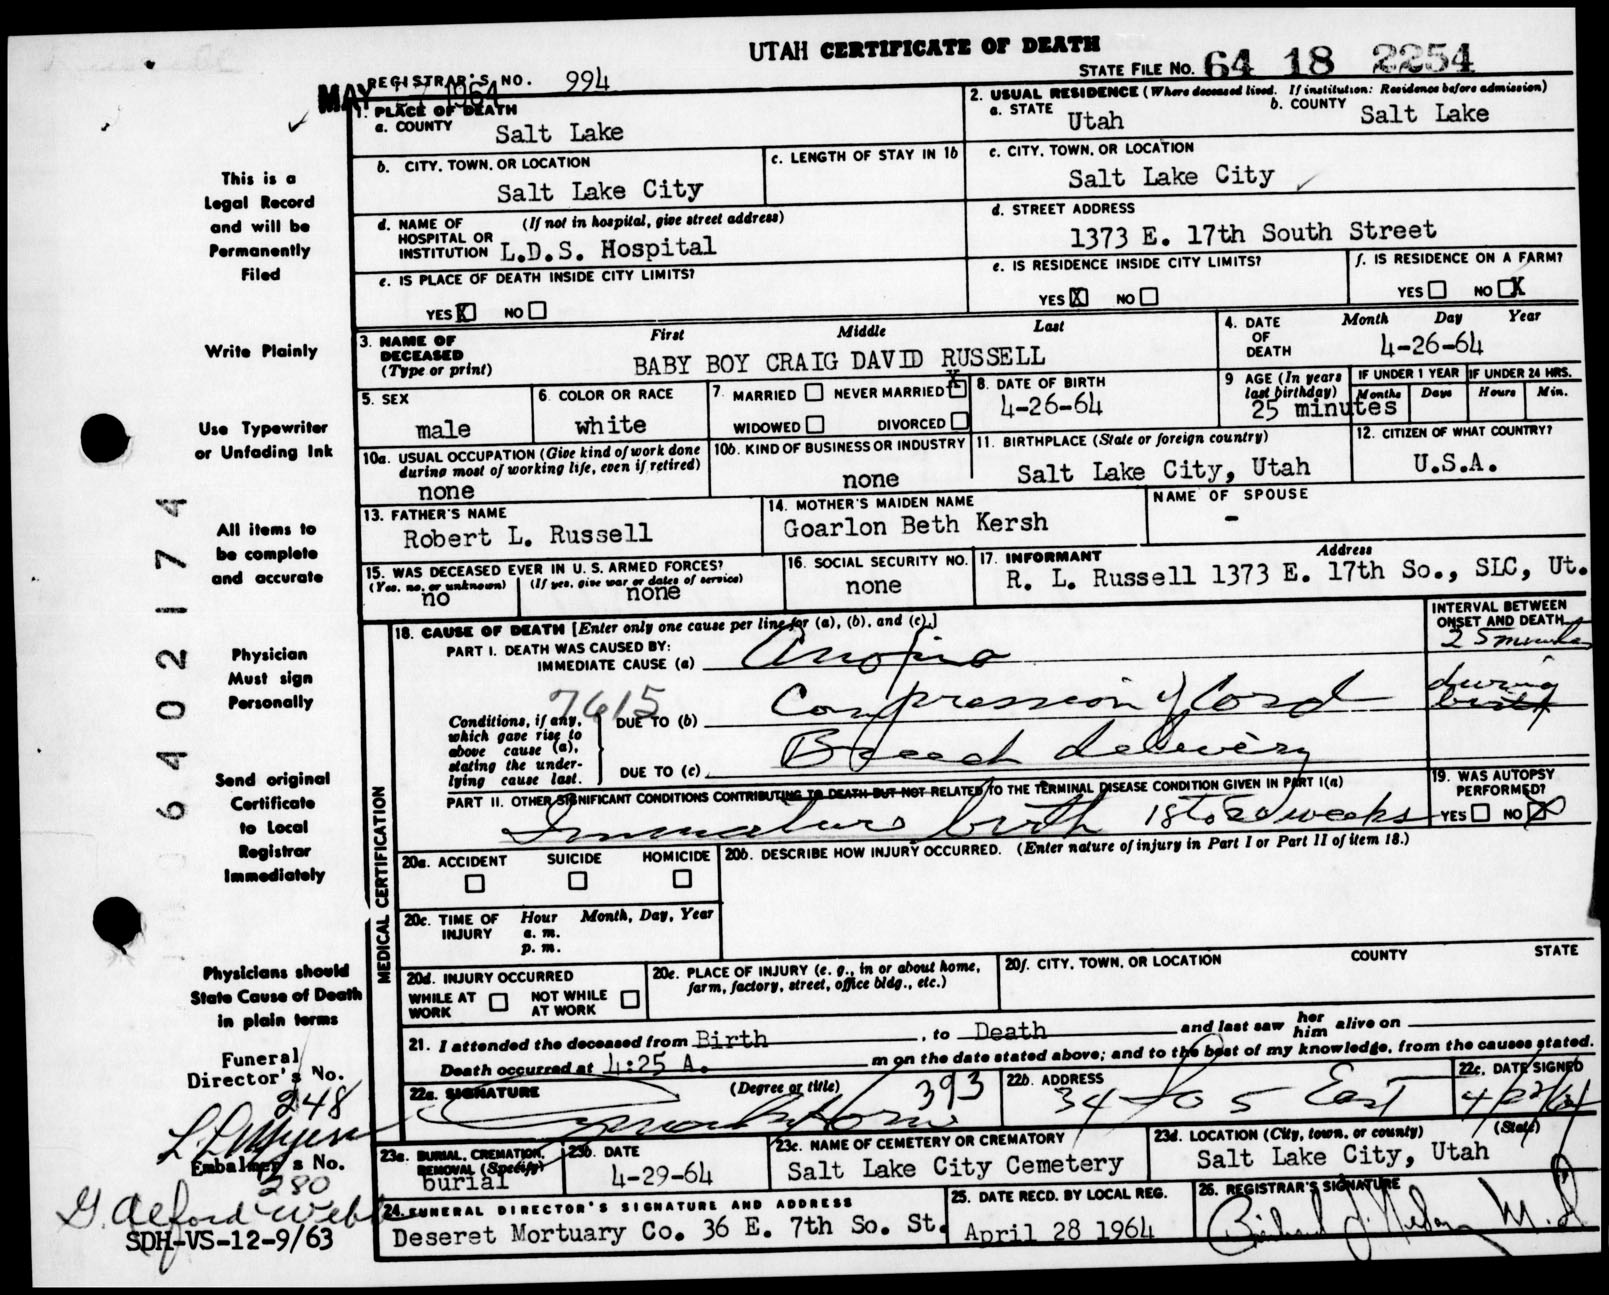 UTAH CERTIFICATE OF DEATH
STATE FILE NO. 64 18 2254
REGISTRAR'S NO. 994
MAY 1964
1. PLACE OF DEATH
a. COUNTY Salt Lake
2. USUAL RESIDENCE (Where deceased lived. If institution: Residence before admission)
a. STATE Utah b. COUNTY Salt Lake
b. CITY, TOWN, OR LOCATION Salt Lake City
c. LENGTH OF STAY IN 1b
c. CITY, TOWN, OR LOCATION Salt Lake City
d. NAME OF HOSPITAL OR INSTITUTION (If not in hospital, give street address) L.D.S. Hospital
d. STREET ADDRESS 1373 E. 17th South Street
e. IS PLACE OF DEATH INSIDE CITY LIMITS?
YES X NO
e. IS RESIDENCE INSIDE CITY LIMITS?
YES X NO
f. IS RESIDENCE ON A FARM?
YES NO X
3. NAME OF DECEASED (Type or print) First Middle Last
BABY BOY CRAIG DAVID RUSSELL
4. DATE OF DEATH Month Day Year
4-26-64
5. SEX male
6. COLOR OR RACE white
7. MARRIED NEVER MARRIED X
WIDOWED DIVORCED
8. DATE OF BIRTH 4-26-64
9 AGE (In years last birthday) IF UNDER 1 YEAR Months Days IF UNDER 24 HRS. Hours Min.
25 minutes
10a. USUAL OCCUPATION (Give kind of work done during most of working life, even if retired)
none
10b. KIND OF BUSINESS OR INDUSTRY
none
11. BIRTHPLACE (State or foreign country)
Salt Lake City, Utah
12. CITIZEN OF WHAT COUNTRY?
U.S.A.
13. FATHER'S NAME
Robert L. Russell
14. MOTHER'S MAIDEN NAME
Goarlon Beth Kersh
NAME OF SPOUSE
-
15. WAS DECEASED EVER IN U. S. ARMED FORCES?
(Yes, no, or unknown) (If yes, give war or dates of service)
no none
16. SOCIAL SECURITY NO.
none
17. INFORMANT Address
R. L. Russell 1373 E. 17th So., SLC, Ut.
18. CAUSE OF DEATH [Enter only one cause per line for (a), (b), and (c).]
INTERVAL BETWEEN ONSET AND DEATH
PART I. DEATH WAS CAUSED BY:
IMMEDIATE CAUSE (a) Anoxia 25 minutes
7615
Conditions, if any, which gave rise to above cause (a), stating the underlying cause last.
DUE TO (b) Compression of Cord during birth
DUE TO (c) Breech delivery
PART II. OTHER SIGNIFICANT CONDITIONS CONTRIBUTING TO DEATH BUT NOT RELATED TO THE TERMINAL DISEASE CONDITION GIVEN IN PART I(a)
Immature birth 18 to 20 weeks
19. WAS AUTOPSY PERFORMED?
YES NO X
MEDICAL CERTIFICATION
20a. ACCIDENT SUICIDE HOMICIDE
20b. DESCRIBE HOW INJURY OCCURRED. (Enter nature of injury in Part I or Part II of item 18.)
20c. TIME OF INJURY Hour Month, Day, Year
a. m.
p. m.
20d. INJURY OCCURRED
WHILE AT WORK NOT WHILE AT WORK
20e. PLACE OF INJURY (e. g., in or about home, farm, factory, street, office bldg., etc.)
20f. CITY, TOWN, OR LOCATION COUNTY STATE
21. I attended the deceased from Birth, to Death and last saw her him alive on
Death occurred at 4:25 A. m on the date stated above; and to the best of my knowledge, from the causes stated.
22a. SIGNATURE (Degree or title) 393
22b. ADDRESS 34 So 5 East
22c. DATE SIGNED
23a. BURIAL, CREMATION, REMOVAL (Specify)
burial
23b. DATE
4-29-64
23c. NAME OF CEMETERY OR CREMATORY
Salt Lake City Cemetery
23d. LOCATION (City, town, or county) (State)
Salt Lake City, Utah
24. FUNERAL DIRECTOR'S SIGNATURE AND ADDRESS
Deseret Mortuary Co. 36 E. 7th So. St.
25. DATE RECD. BY LOCAL REG.
April 28 1964
26. REGISTRAR'S SIGNATURE
M.D.
This is a
Legal Record
and will be
Permanently
Filed
Write Plainly
Use Typewriter
or Unfading Ink
All items to
be complete
and accurate
Physician
Must sign
Personally
Send original
Certificate
to Local
Registrar
Immediately
Physicians should
State Cause of Death
in plain terms
Funeral
Director's No.
248
Embalmer's No.
280
G. Alford Webb
SDH-VS-12-9/63
6402174